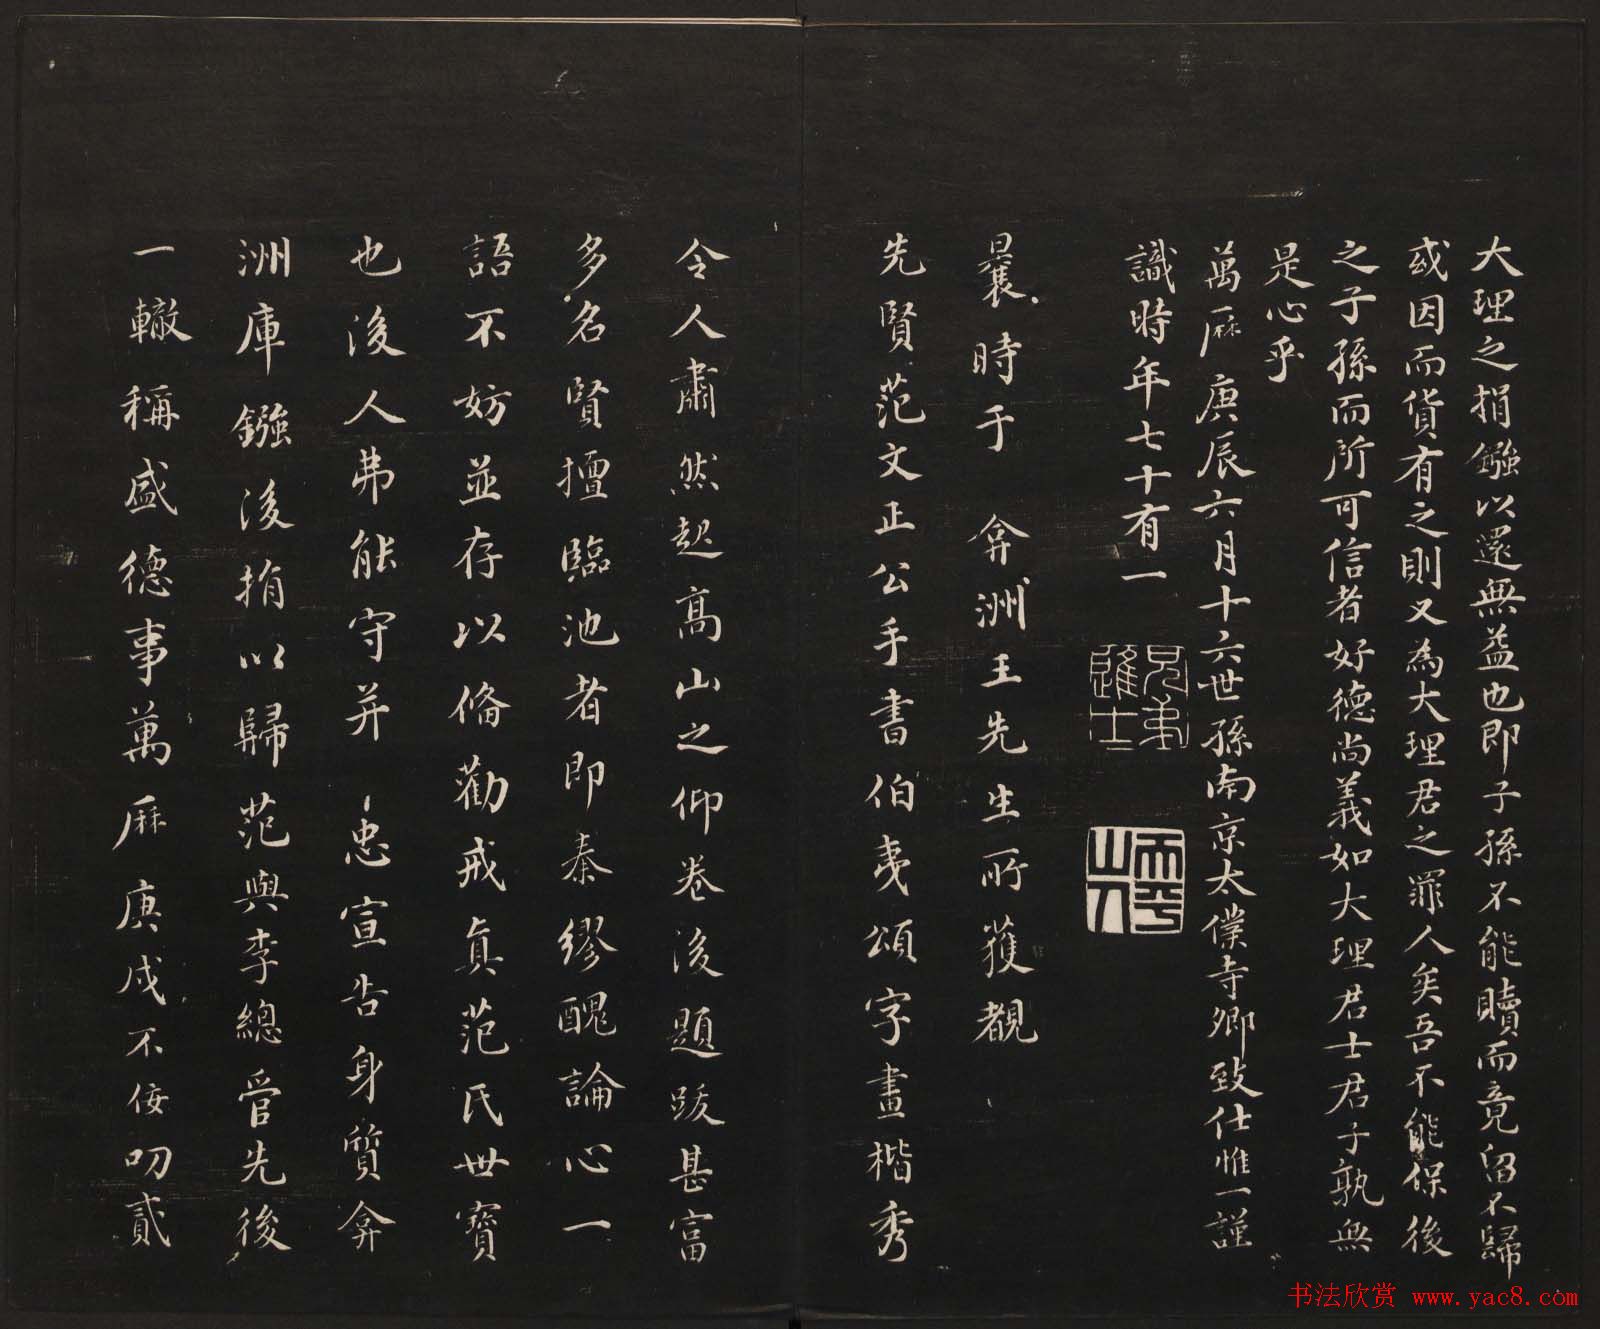 大理之捐鏹以還無益也即子孫不能贖而竟留不歸
或因而貨有之則又為大理君之罪人矣吾不能保後
之子孫而所可信者好德尚義如大理君士君子孰無
是心乎
萬曆庚辰六月十六世孫南京太僕寺卿致仕惟一謹
識時年七十有一
曩時于 弇洲王先生所獲覩
先賢范文正公手書伯夷頌字畫楷秀
令人肅然起高山之仰卷後題跋甚富
多名賢擅臨池者即秦繆醜論心一
語不妨並存以俻勸戒真范氏世寶
也後人弗能守并忠宣告身質弇
洲庫鏹後捐以歸范與李總管先後
一轍稱盛德事萬曆庚戌不佞叨貳
书法欣赏 www.yac8.com